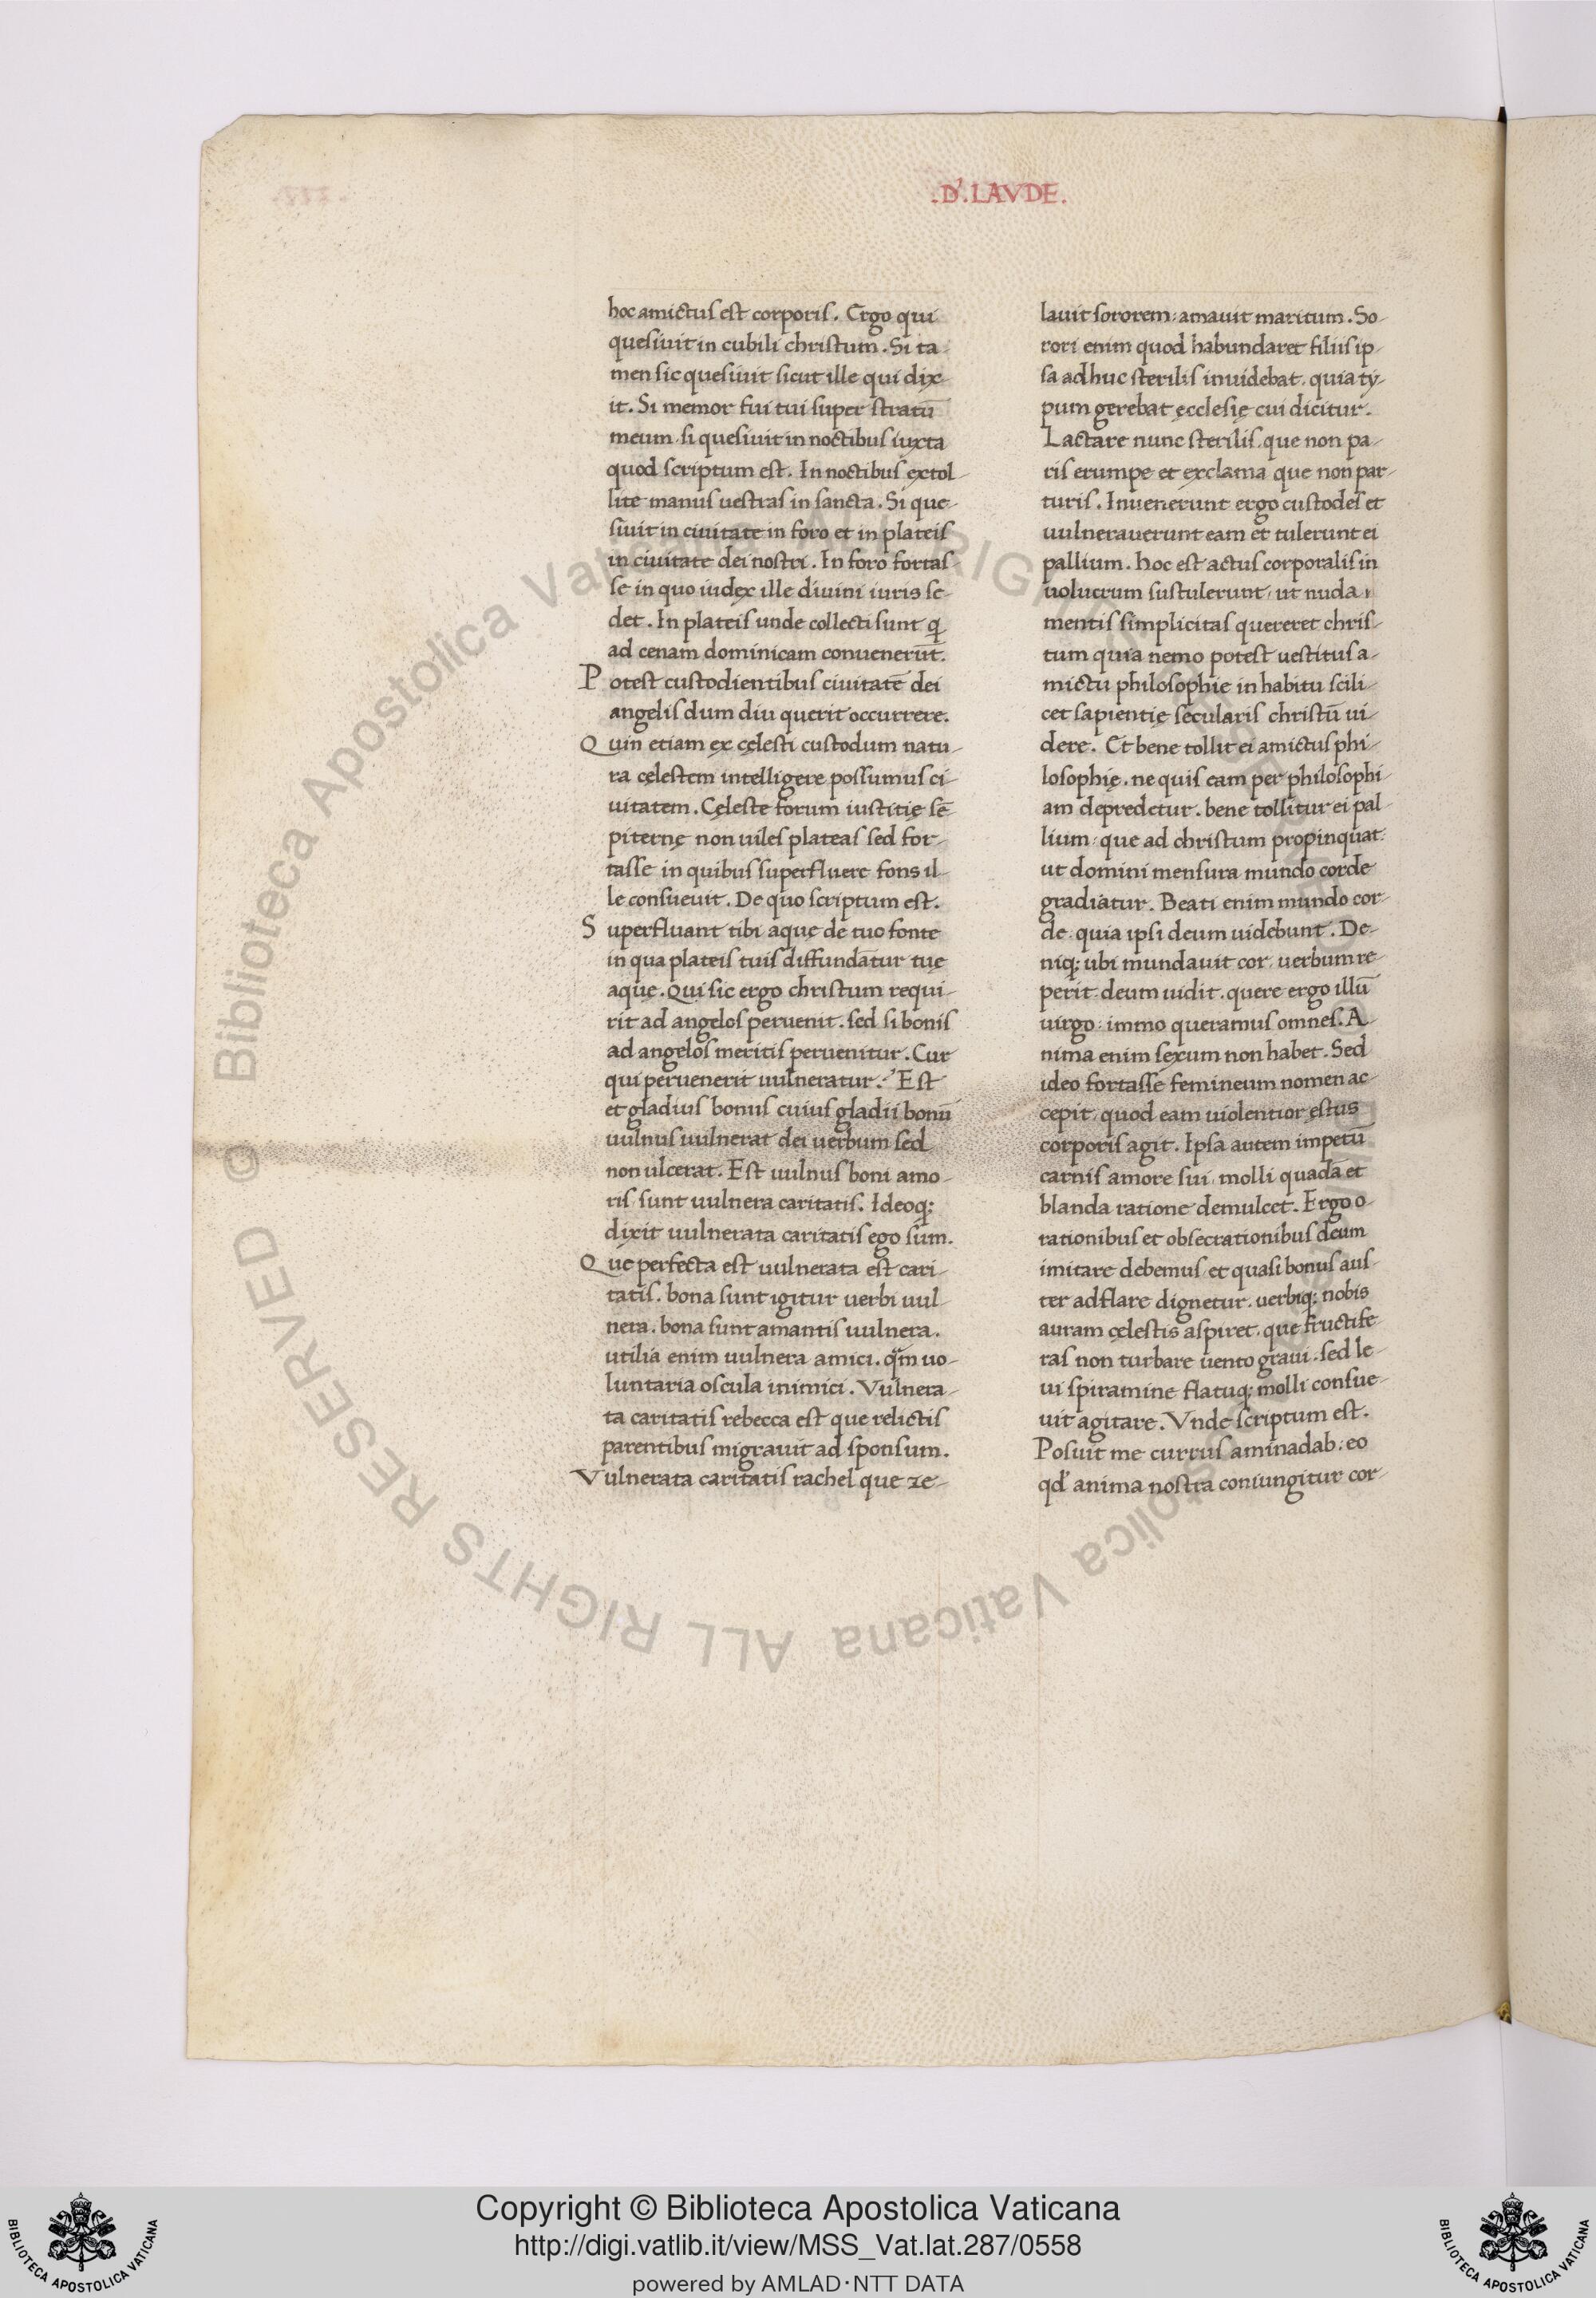 .D'.LAVDE.
hoc amictus est corporis. Ergo qui
quesiuit in cubili christum. Si ta-
men sic quesiuit sicut ille qui dix-
it. Si memor fui tui super stratū
meum. si quesiuit in noctibus iuxta
quod scriptum est. In noctibus extol-
lite manus uestras in sancta. Si que-
siuit in ciuitate in foro et in plateis
in ciuitate dei nostri. In foro fortas-
se in quo iudex ille diuini iuris se-
det. In plateis unde collecti sunt q̄
ad cenam dominicam conuenerūt.
Potest custodientibus ciuitatē dei
angelis dum diu querit occurrere.
Quin etiam ex cęlesti custodum natu-
ra cęlestem intelligere possumus ci-
uitatem. Cęleste forum iustitię sē
piternę non uiles plateas sed for-
tasse in quibus superfluere fons il-
le consueuit. De quo scriptum est.
Superfluant tibi aquę de tuo fonte
in qua plateis tuis diffundātur tuę
aquę. Qui sic ergo christum requi-
rit ad angelos peruenit. sed si bonis
ad angelos meritis peruenitur. Cur
qui peruenerit uulneratur. Est
et gladius bonus cuius gladii bonū
uulnus uulnerat dei uerbum sed
non ulcerat. Est uulnus boni amo-
ris. sunt uulnera caritatis. Ideoq;
dixit uulnerata caritatis ego sum.
Que perfecta est uulnerata est cari-
tatis. bona sunt igitur uerbi uul-
nera. bona sunt amantis uulnera.
utilia enim uulnera amici. q̄m uo-
luntaria oscula inimici. Vulnera-
ta caritatis rebecca est que relictis
parentibus migrauit ad sponsum.
Vulnerata caritatis rachel que ze-
lauit sororem: amauit maritum. So-
rori enim quod habundaret filiis ip-
sa adhuc sterilis inuidebat. quia ty-
pum gerebat ęcclesię cui dicitur.
Laetare nunc sterilis. que non pa-
ris erumpe et exclama que non par-
turis. Inuenerunt ergo custodes et
uulnerauerunt eam et tulerunt ei
pallium. hoc est actus corporalis in
uolucrum sustulerunt, ut nuda
mentis simplicitas quereret chris-
tum quia nemo potest uestitus a-
mictu philosophie in habitu scili-
cet sapientię sęcularis christū ui-
dere. Et bene tollit ei amictus phi-
losophię. ne quis eam per philosophi-
am depredetur. bene tollitur ei pal-
lium. que ad christum propinquat.
ut domini mensura mundo corde
gradiatur. Beati enim mundo cor-
de. quia ipsi deum uidebunt. De-
niq; ubi mundauit cor, uerbum re
perit. deum uidit. quere ergo illū
uirgo: immo queramus omnes. A-
nima enim sexum non habet. Sed
ideo fortasse femineum nomen ac-
cepit, quod eam uiolentior ęstus
corporis agit. Ipsa autem impetū
carnis amore sui, molli quadā et
blanda ratione demulcet. Ergo o-
rationibus et obsecrationibus deum
imitare debemus, et quasi bonus aus-
ter adflare dignetur. uerbiq; nobis
auram cęlestis aspiret. que fructife
ras non turbare uento graui. sed le-
ui spiramine flatuq; molli consue-
uit agitare. Vnde scriptum est.
Posuit me currus aminadab: eo
qd' anima nostra coniungitur cor-
© Biblioteca Apostolica Vaticana ALL RIGHTS RESERVED
Copyright © Biblioteca Apostolica Vaticana
http://digi.vatlib.it/view/MSS_Vat.lat.287/0558
powered by AMLAD·NTT DATA
BIBLIOTECA APOSTOLICA VATICANA
BIBLIOTECA APOSTOLICA VATICANA